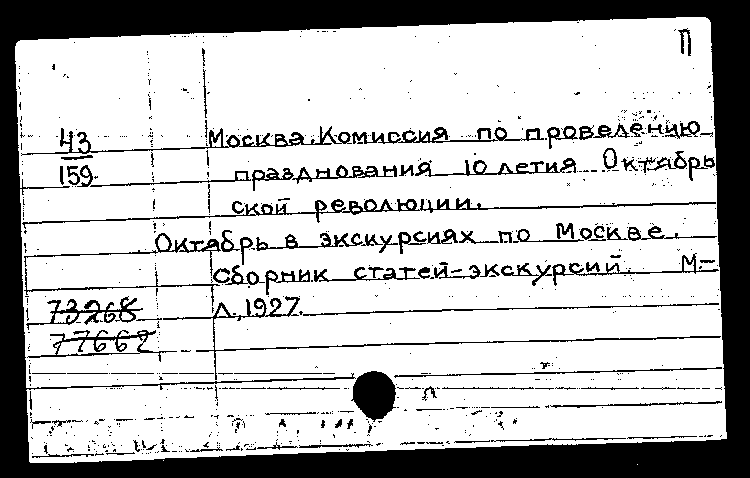 П
43
159
Москва. Комиссия по проведению
празднования 10 летия Октябрь
ской революции.
Октябрь в экскурсиях по Москве.
Сборник статей-экскурсий. М-
Л., 1927.
73268
77662